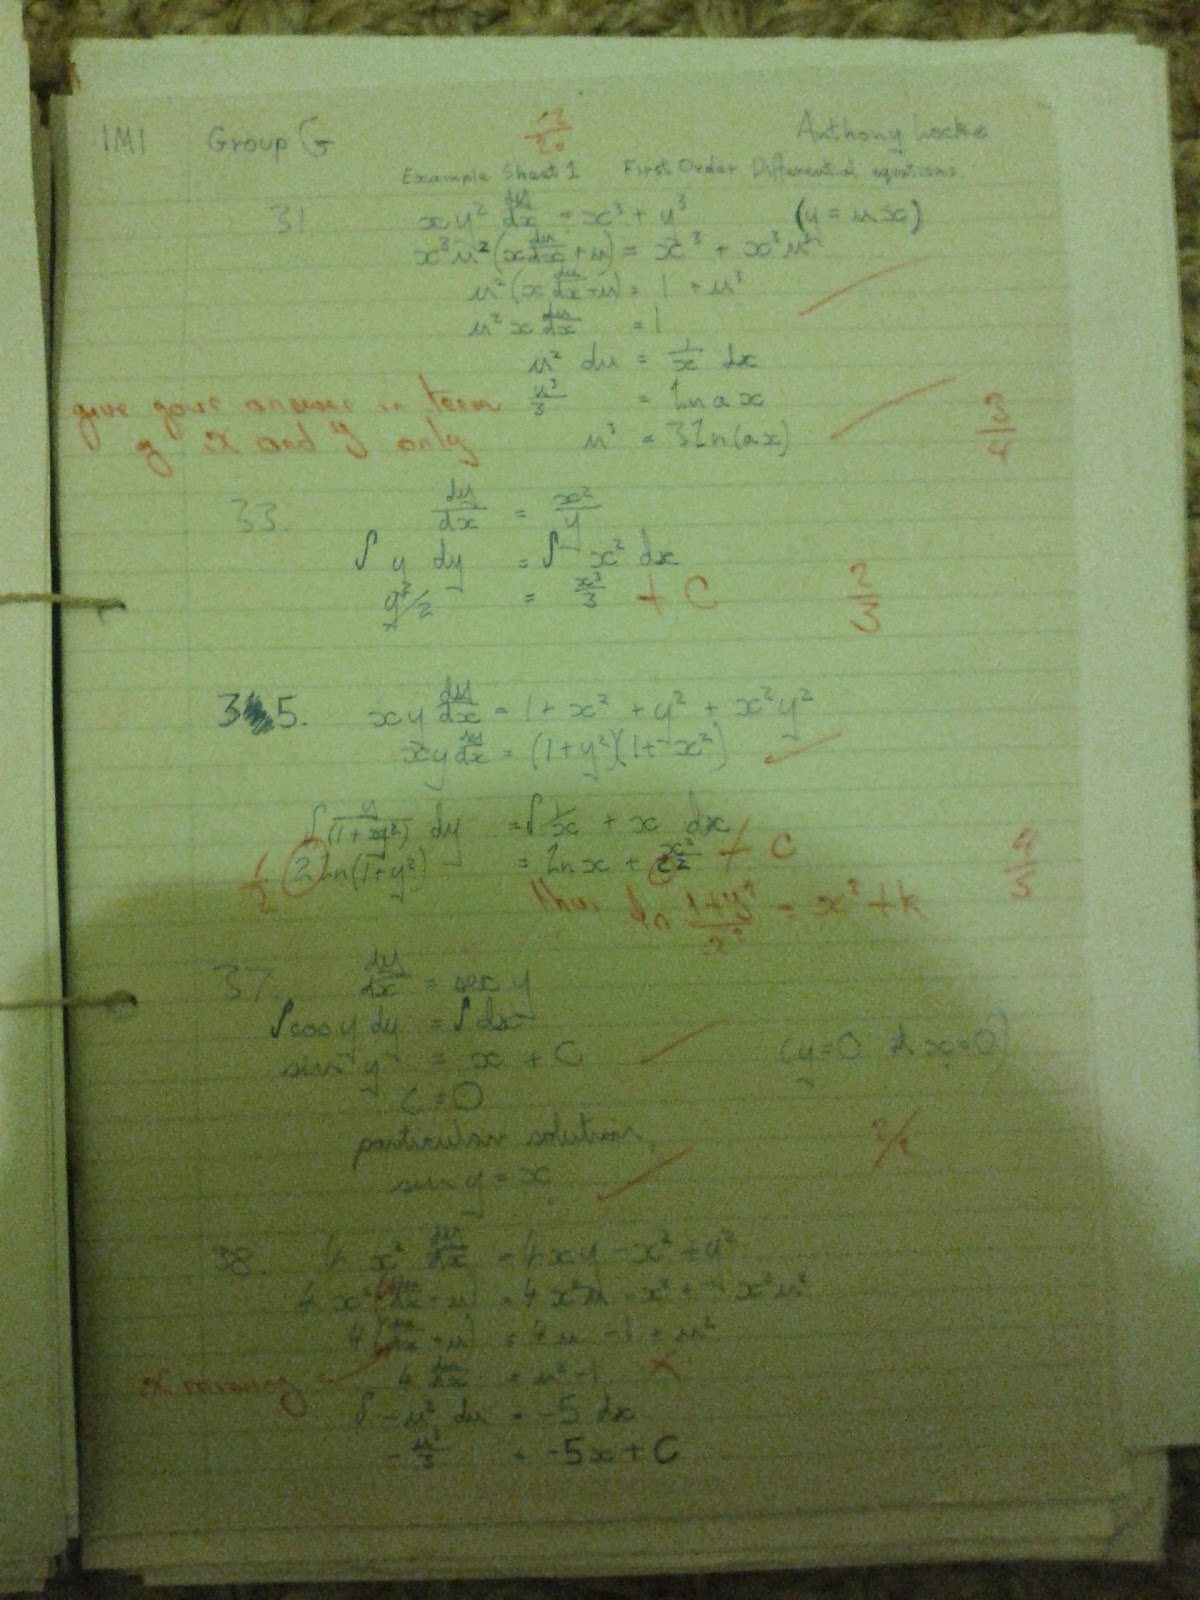 1M1 Group G 12/20 Anthony Locke
Example Sheet 1 First Order Differential equations.
31 xy² dy/dx = x³ + y³ (y = ux)
x³u²(x du/dx + u) = x³ + x³u³
u²(x du/dx + u) = 1 + u³
u² x du/dx = 1
u² du = 1/x dx
give your answer in term u³/3 = ln ax
of x and y only u³ = 3 ln(ax) 3/4
33. dy/dx = x²/y
∫ y dy = ∫ x² dx
y²/2 = x³/3 + C 2/3
35. xy dy/dx = 1 + x² + y² + x²y²
xy dy/dx = (1+y²)(1+x²)
∫ y/(1+y²) dy = ∫ 1/x + x dx
1/2 2 ln(1+y²) = ln x + x²/2 + C 4/5
thus ln (1+y²)/x² = x² + k
37. dy/dx = sec y
∫ cos y dy = ∫ dx
sin y = x + C (y=0 at x=0)
C = 0
particular solution 3/3
sin y = x
38. 4x² dy/dx = 4xy - x² + y²
4x²(du/dx + u) = 4x²u - x² + x²u²
4(du/dx + u) = 4u - 1 + u²
x missing 4 du/dx = u² - 1 ×
∫ -u² du = -5 dx
-u³/3 = -5x + C